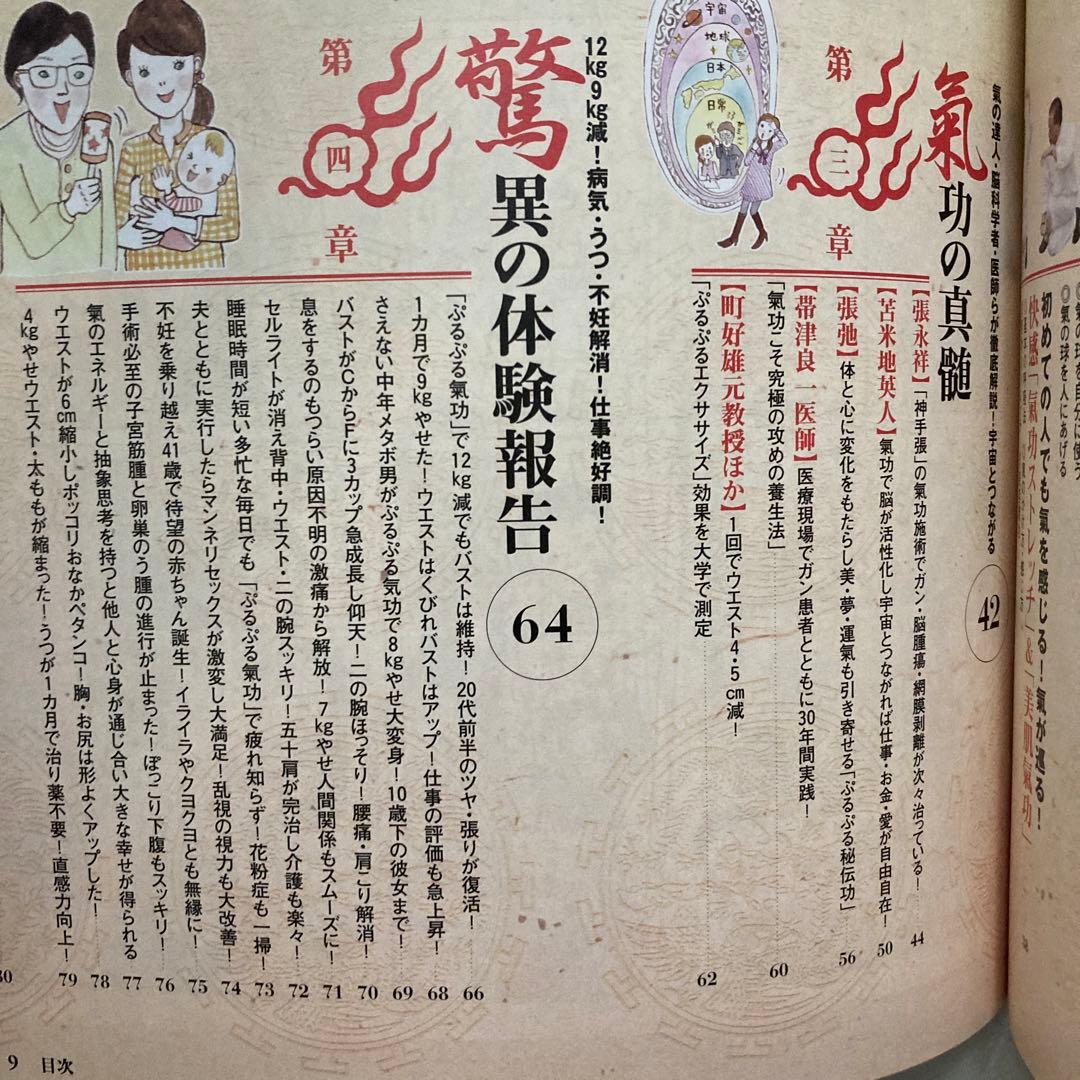 初めての人でも氣を感じる！氣が巡る！
快感「氣功ストレッチ」＆「美肌氣功」
◎氣の球を人にあげる
第三章
氣功の真髄
氣の達人・脳科学者・医師らが徹底解説！宇宙とつながる
42
宇宙
地球
日本
日常
【張永祥】「神手張」の氣功施術でガン・脳腫瘍・網膜剥離が次々治っている！ 44
【苫米地英人】氣功で脳が活性化し宇宙とつながれば仕事・お金・愛が自由自在！ 50
【張弛】体と心に変化をもたらし美・夢・運氣も引き寄せる「ぷるぷる秘伝功」 56
【帯津良一医師】医療現場でガン患者とともに30年間実践！
「氣功こそ究極の攻めの養生法」 60
【町好雄元教授ほか】1回でウエスト4・5㎝減！
「ぷるぷるエクササイズ」効果を大学で測定 62
第四章
驚異の体験報告
12㎏9㎏減！病気・うつ・不妊解消！仕事絶好調！
64
「ぷるぷる氣功」で12㎏減でもバストは維持！20代前半のツヤ・張りが復活！ 66
1カ月で9㎏やせた！ウエストはくびれバストはアップ！仕事の評価も急上昇！ 68
さえない中年メタボ男がぷるぷる気功で8㎏やせ大変身！10歳下の彼女まで！ 69
バストがCからFに3カップ急成長し仰天！二の腕ほっそり！腰痛・肩こり解消！ 70
息をするのもつらい原因不明の激痛から解放！7㎏やせ人間関係もスムーズに！ 71
セルライトが消え背中・ウエスト・二の腕スッキリ！五十肩が完治し介護も楽々！ 72
睡眠時間が短い多忙な毎日でも「ぷるぷる氣功」で疲れ知らず！花粉症も一掃！ 73
夫とともに実行したらマンネリセックスが激変し大満足！乱視の視力も大改善！ 74
不妊を乗り越え41歳で待望の赤ちゃん誕生！イライラやクヨクヨとも無縁に！ 75
手術必至の子宮筋腫と卵巣のう腫の進行が止まった！ぽっこり下腹もスッキリ！ 76
氣のエネルギーと抽象思考を持つと他人と心身が通じ合い大きな幸せが得られる 77
ウエストが6㎝縮小しポッコリおなかペタンコ！胸・お尻は形よくアップした！ 78
4㎏やせウエスト・太ももが縮まった！うつが1カ月で治り薬不要！直感力向上！ 79
9 目次